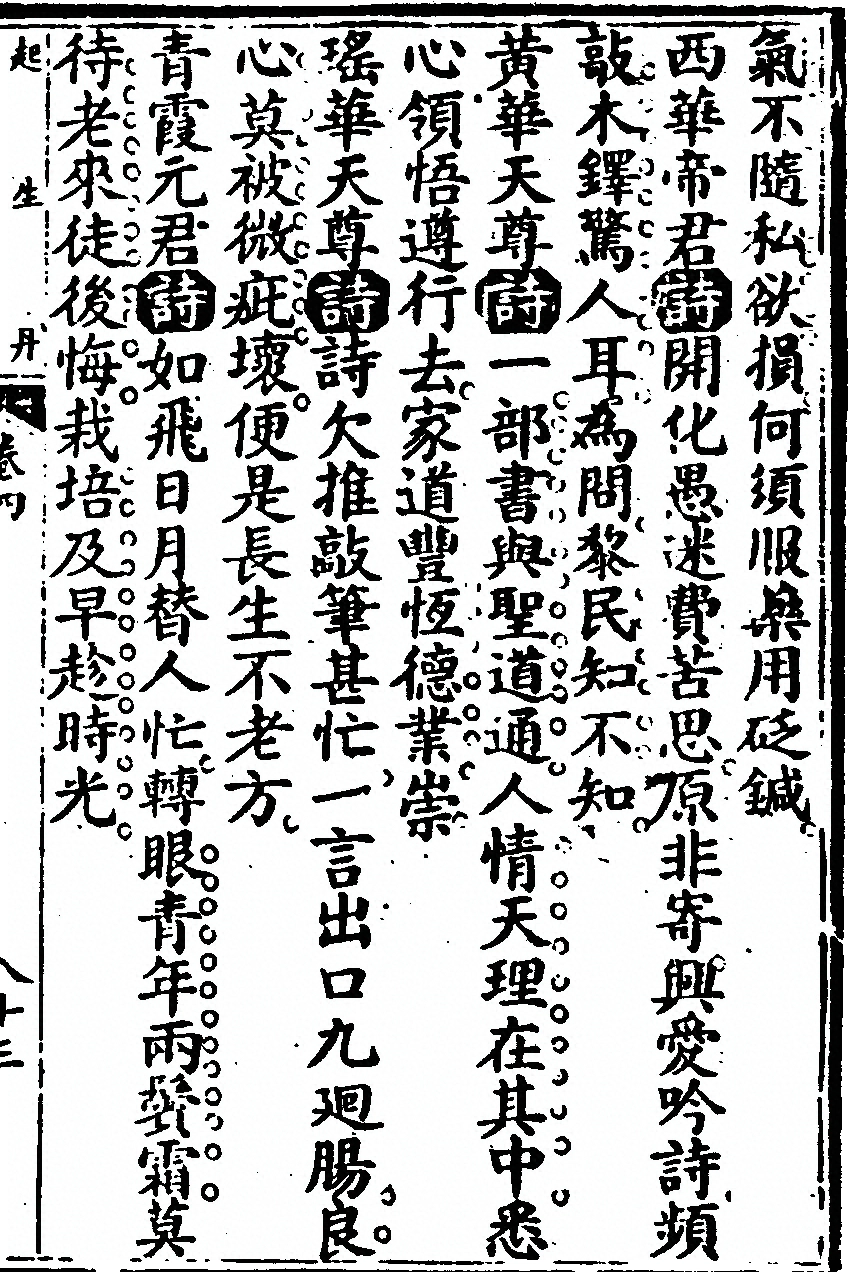 氣不隨私欲損何須服藥用砭鍼
西華帝君詩開化愚迷費苦思原非寄興愛吟詩頻
敲木鐸驚人耳為問黎民知不知
黃華天尊詩一部書與聖道通人情天理在其中悉
心領悟遵行去家道豐恆德業崇
瑤華天尊詩詩欠推敲筆甚忙一言出口九廻腸良
心莫被微疵壞便是長生不老方
青霞元君詩如飛日月替人忙轉眼青年兩鬢霜莫
待老來徒後悔栽培及早趁時光
起生丹
卷四
八十三